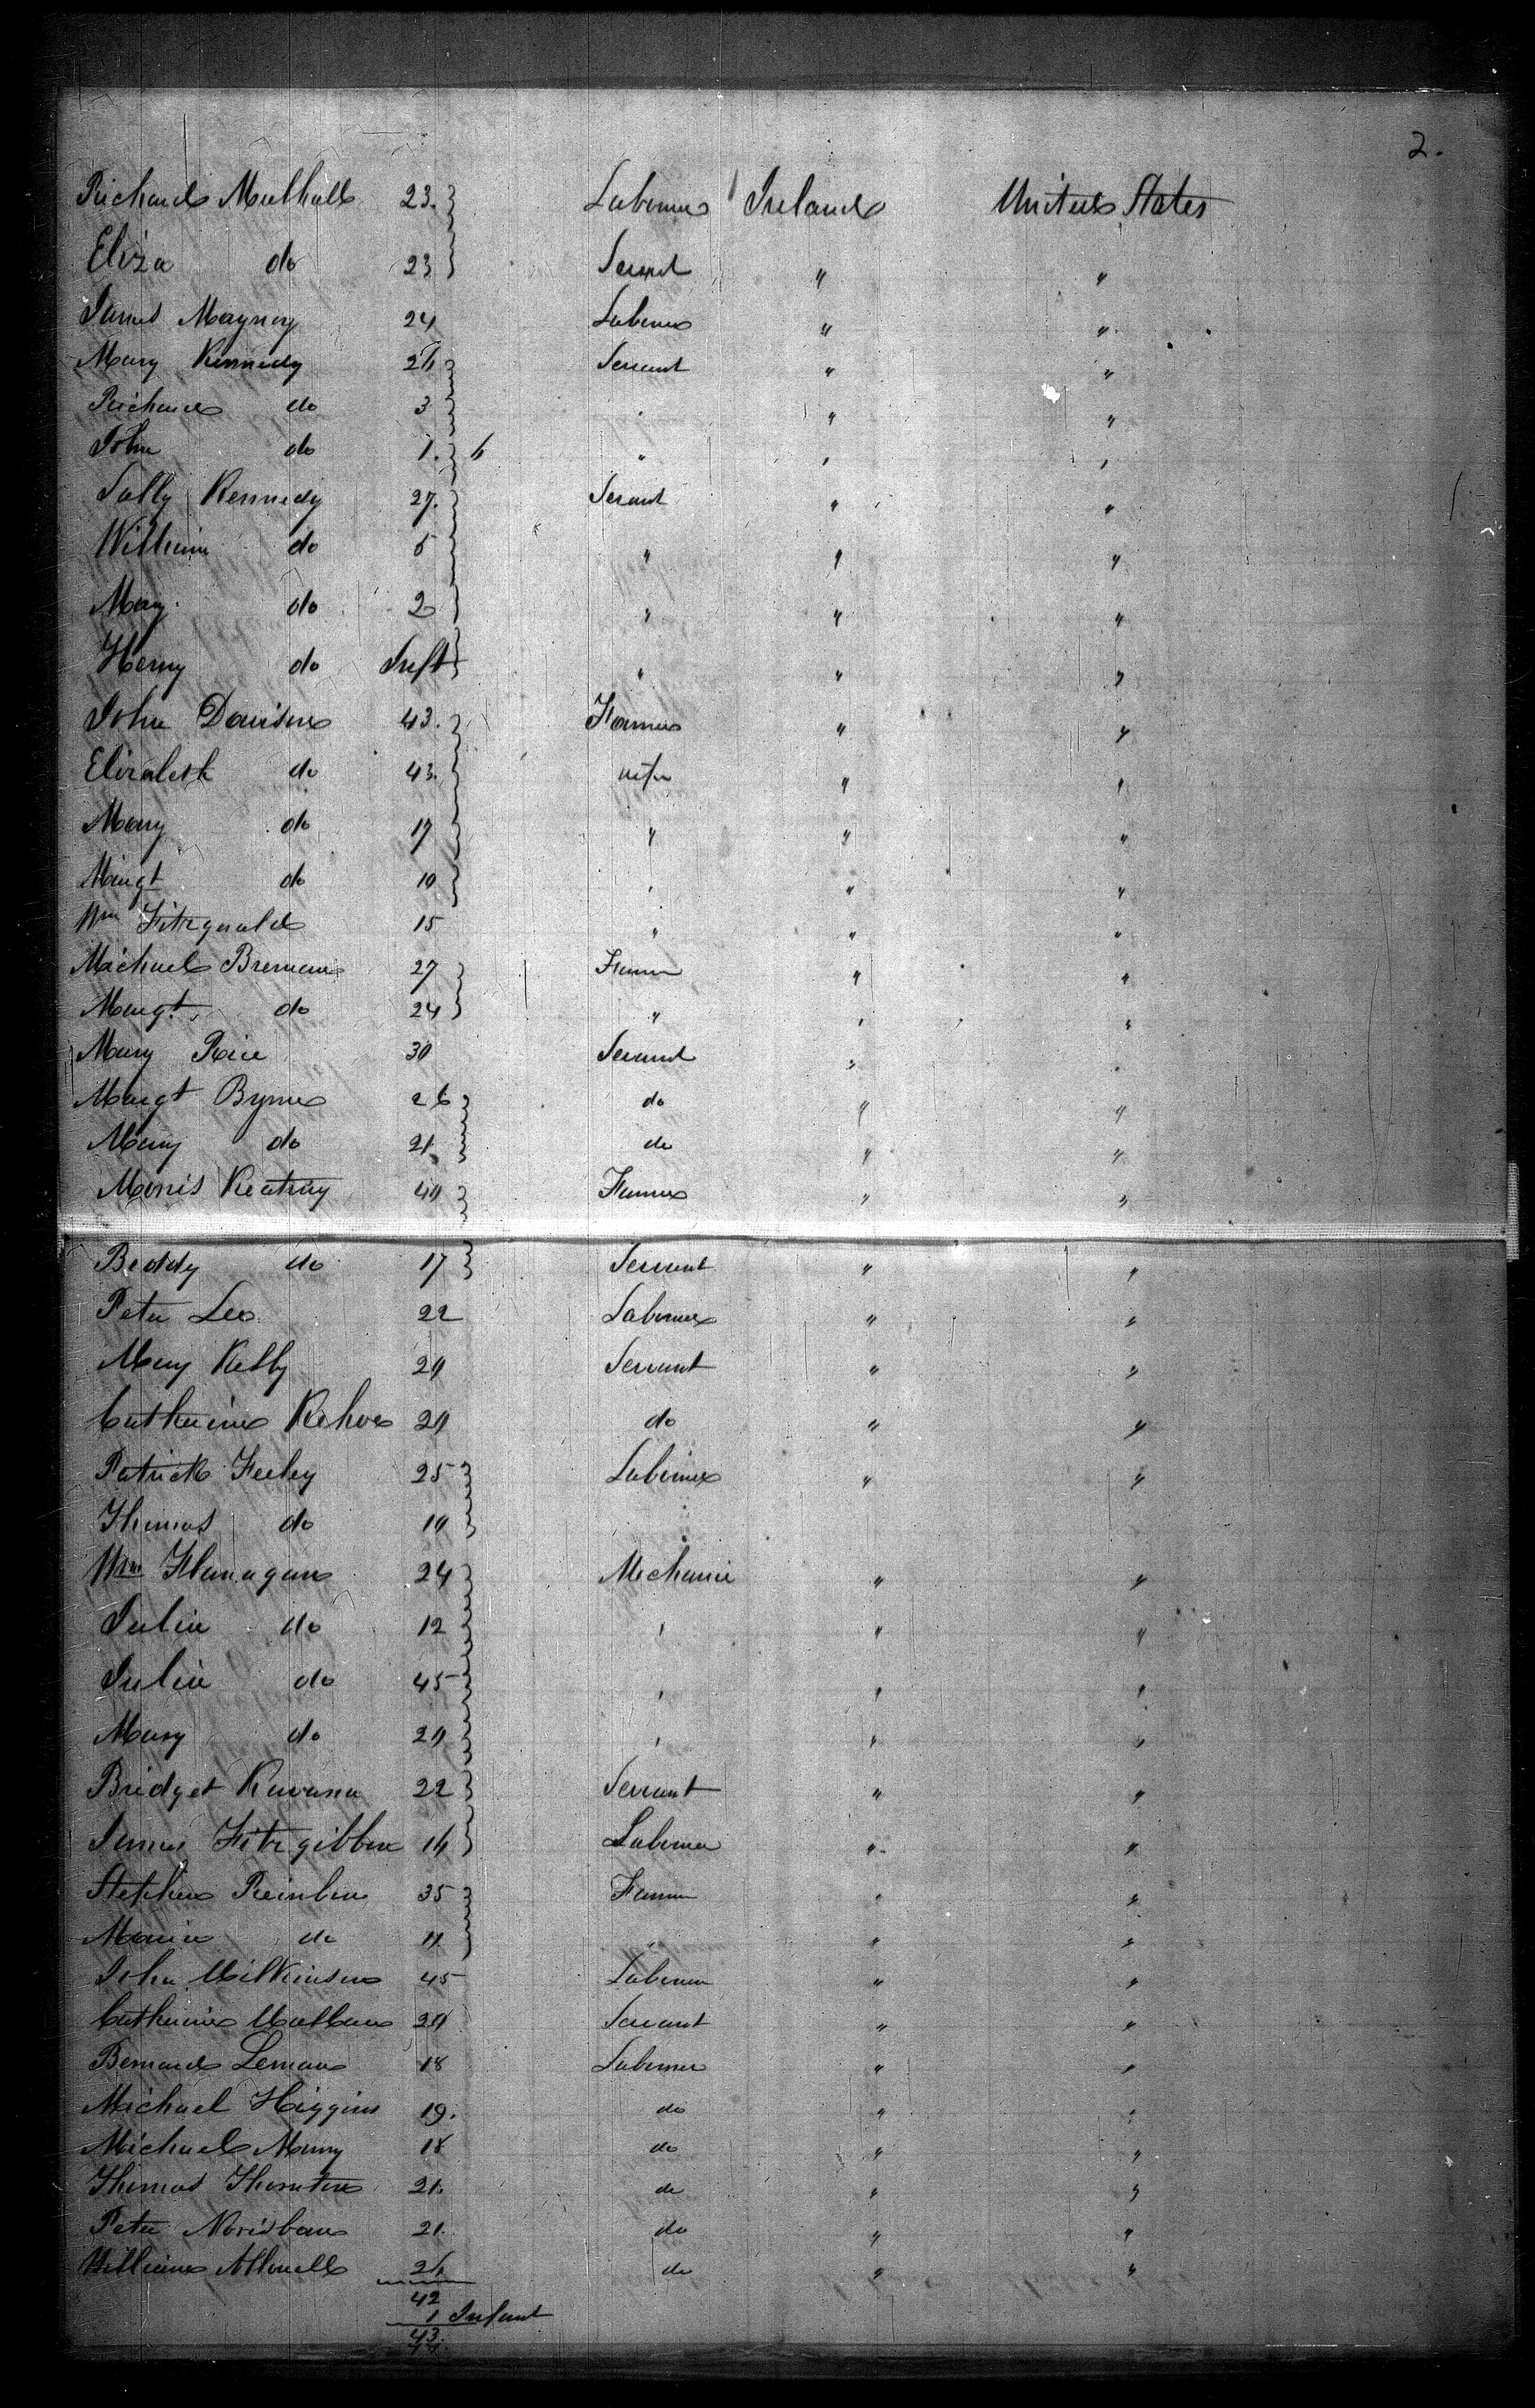 2.
Richard Mulhall 23. Laborer Ireland United States
Eliza do 23 Servant " "
James 24 Laborer " "
Mary Kennedy 26 Servant " "
Richard do 3 " " "
John do 1. " " "
Sally Kennedy 27. Servant " "
William do 5 " " "
Mary do 2 " " "
Henry do Inft " " "
John Davison 43. Farmer " "
Elizabeth do 43. wife " "
Mary do 17 " " "
Margt do 10 " " "
Wm Fitzgerald 15 " " "
Michael Brennan 27 Farmer " "
Margt. do 24 " " "
Mary Rice 30 Servant " "
Margt Byrne 26 do " "
Mary do 21. do " "
Morris Keating 40 Farmer " "
Biddy do 17 Servant " "
Peter Leo 22 Laborer " "
Mary Kelly 20 Servant " "
Catherine Kehoe 20 do " "
Patrick Feeley 25 Laborer " "
Thomas do 10
Wm Flanagan 24 Mechanic " "
Julia do 12 " " "
Julia do 45 " " "
Mary do 20 " " "
Bridget Kavana 22 Servant " "
James Fitzgibbon 16 Laborer " "
Stephen 35 Farmer " "
Maria do 11 " " "
John Wilkinson 45 Laborer " "
Catherine 20 Servant " "
Bernard Leman 18 Laborer " "
Michael Higgins 19. do " "
Michael 18 do " "
Thomas Thornton 21. do " "
Peter 21. do " "
William 26 do " "
42
1 Infant
43.